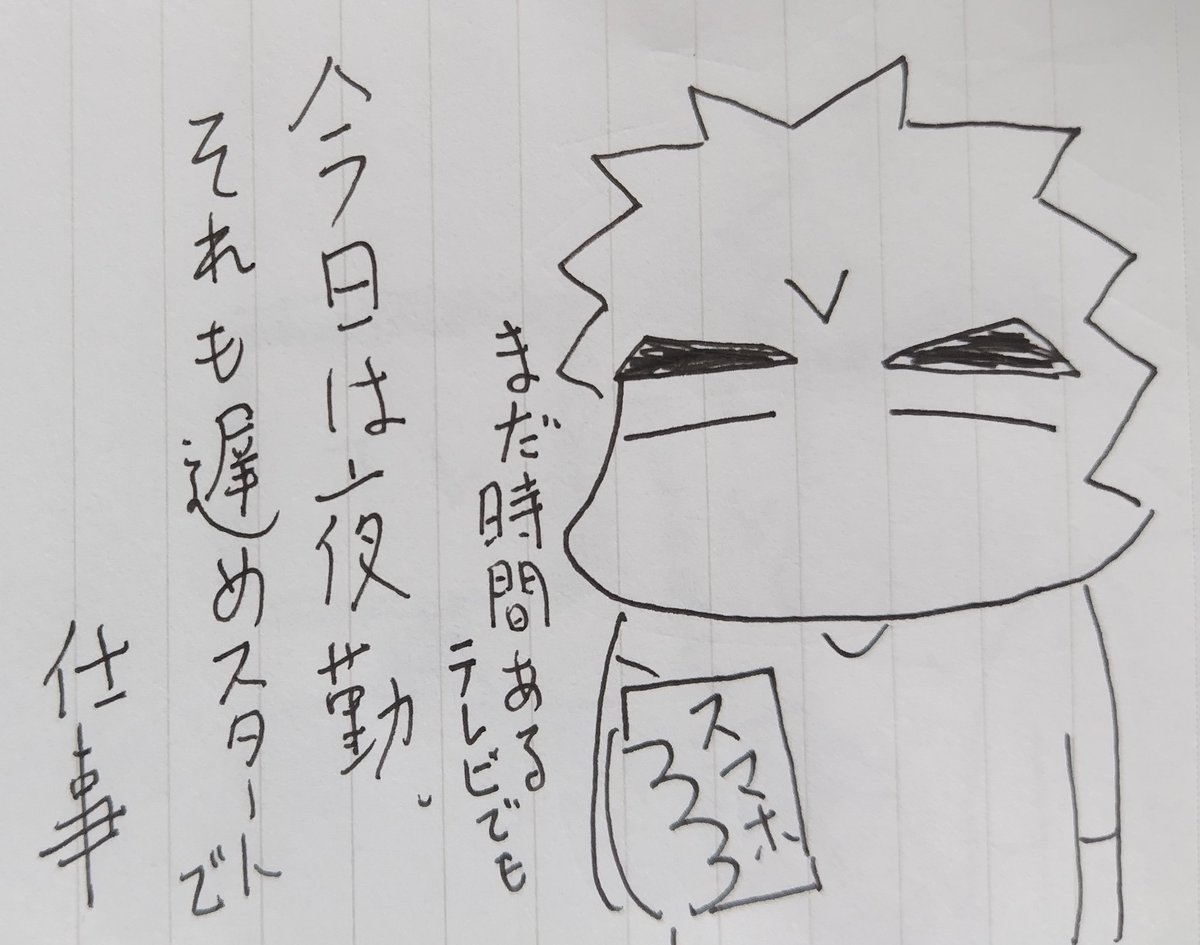 スマホ
まだ時間ある
テレビでも
今日は夜勤。
それも遅めスタートで
仕事